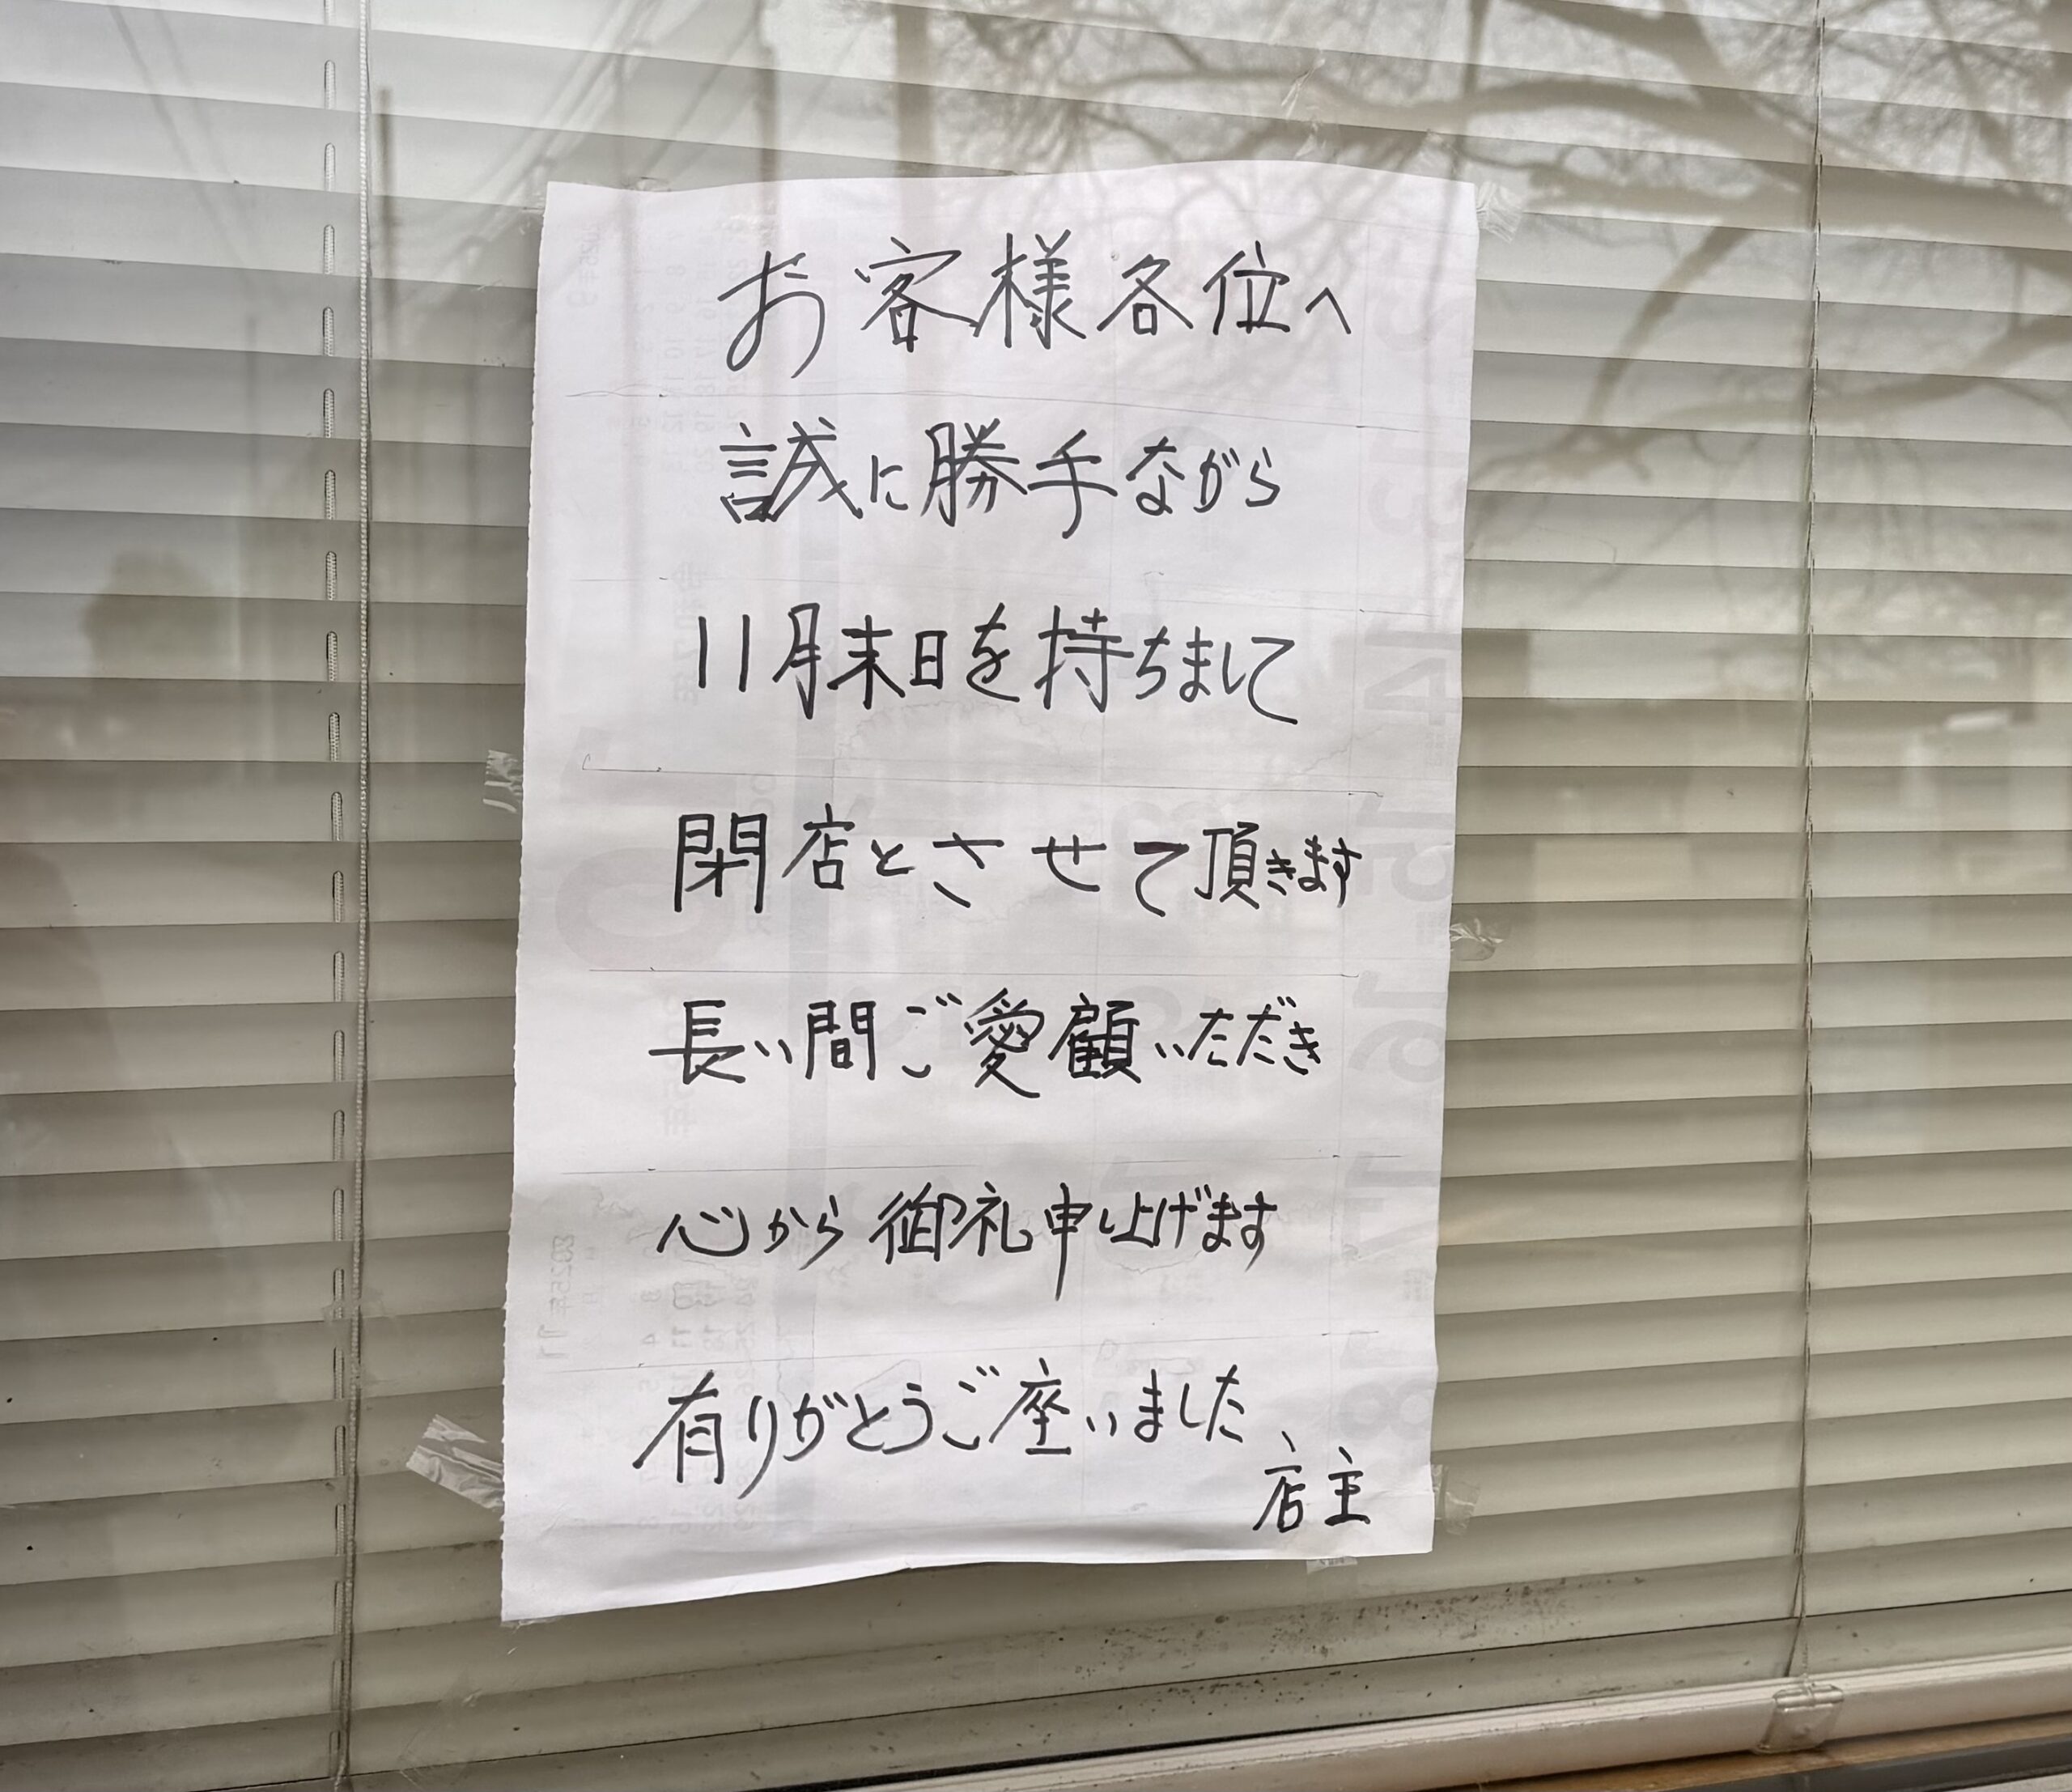 お客様各位へ
誠に勝手ながら
11月末日を持ちまして
閉店とさせて頂きます
長い間ご愛顧いただき
心から御礼申し上げます
有りがとうご座いました、
店主